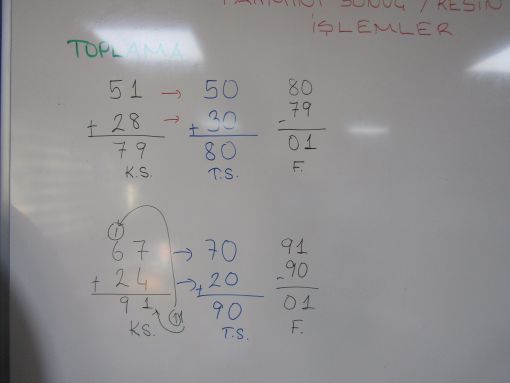 TAHMİNİ SONUÇ / KESİN
İŞLEMLER
TOPLAMA
51 → 50 80
+ 28 → + 30 - 79
79 80 01
K.S. T.S. F.
1
67 → 70 91
+ 24 → + 20 - 90
91 90 01
11
K.S. T.S. F.